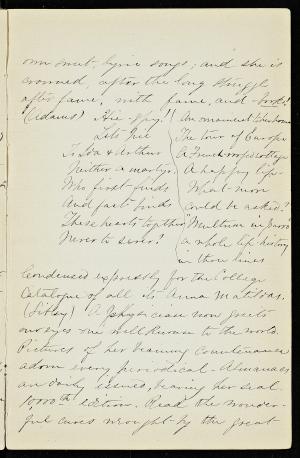 own sweet, lyric songs; and she is
crowned, after the long struggle
after fame, with fame, and books!
(Adams) Hie-spy!
Lets Give
To Ida & Arthur
Neither a martyr,
Who first finds
And fast finds
These hearts together
Never to sever?
An ornament to her home
The tour of Europe
A French roofed cottage
A happy life
What more
Could be asked?
"Multum in parvo"
a whole life history
in three lines
Condensed expressly for the College
Catalogue of all the Anna Matildas.
(Sibley) A physician now greets
our eyes one well known to the world.
Pictures of her beaming countenance
adorn every periodical. Almanacs
are daily issued, bearing her seal.
10,000th edition. Read the wonder-
ful cures wrought by the great